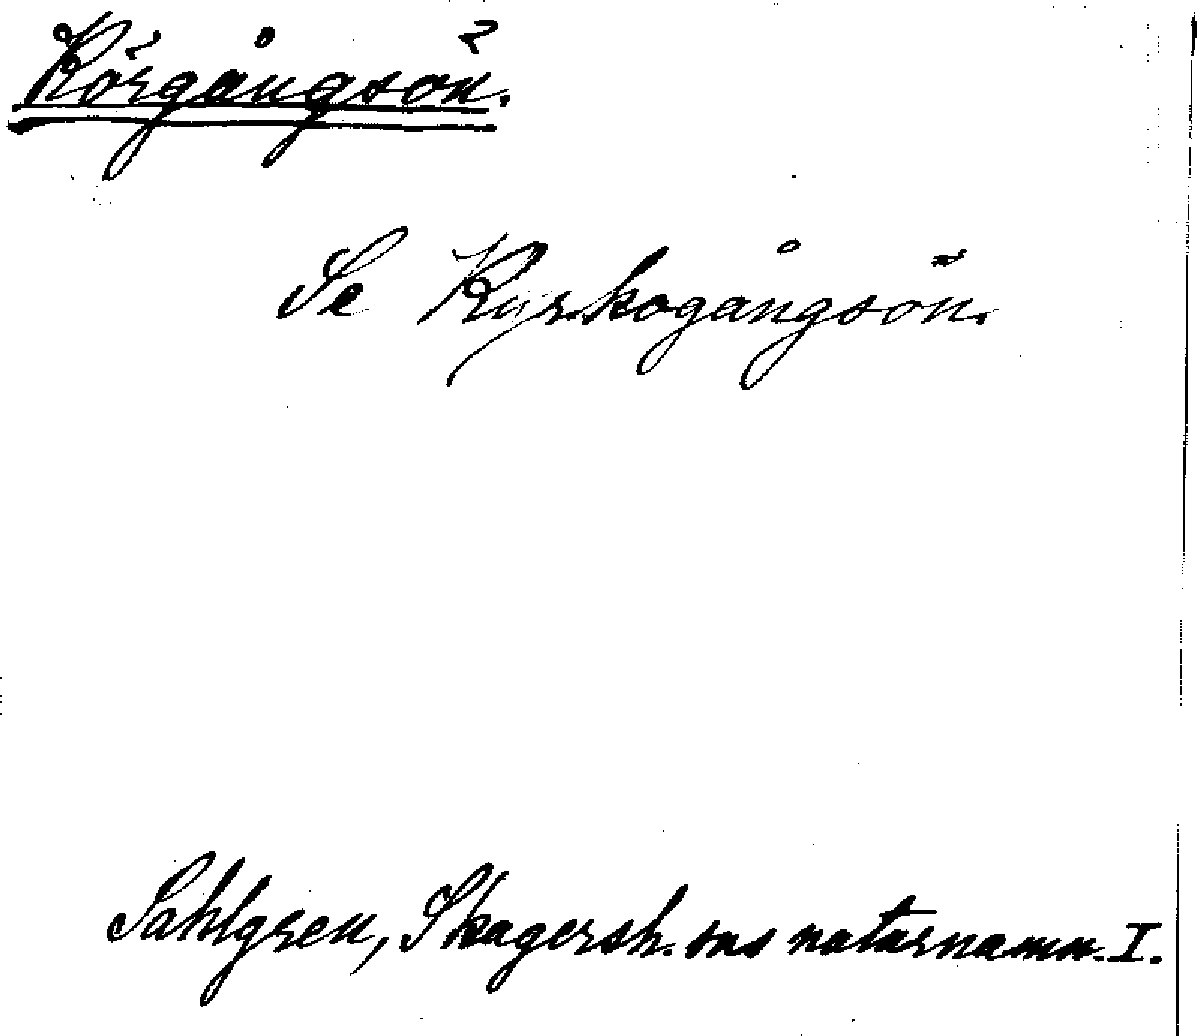 Körgångsön.
Se Kyrkogångsön.
Sahlgren, Skagersh. sns naturnamn. I.